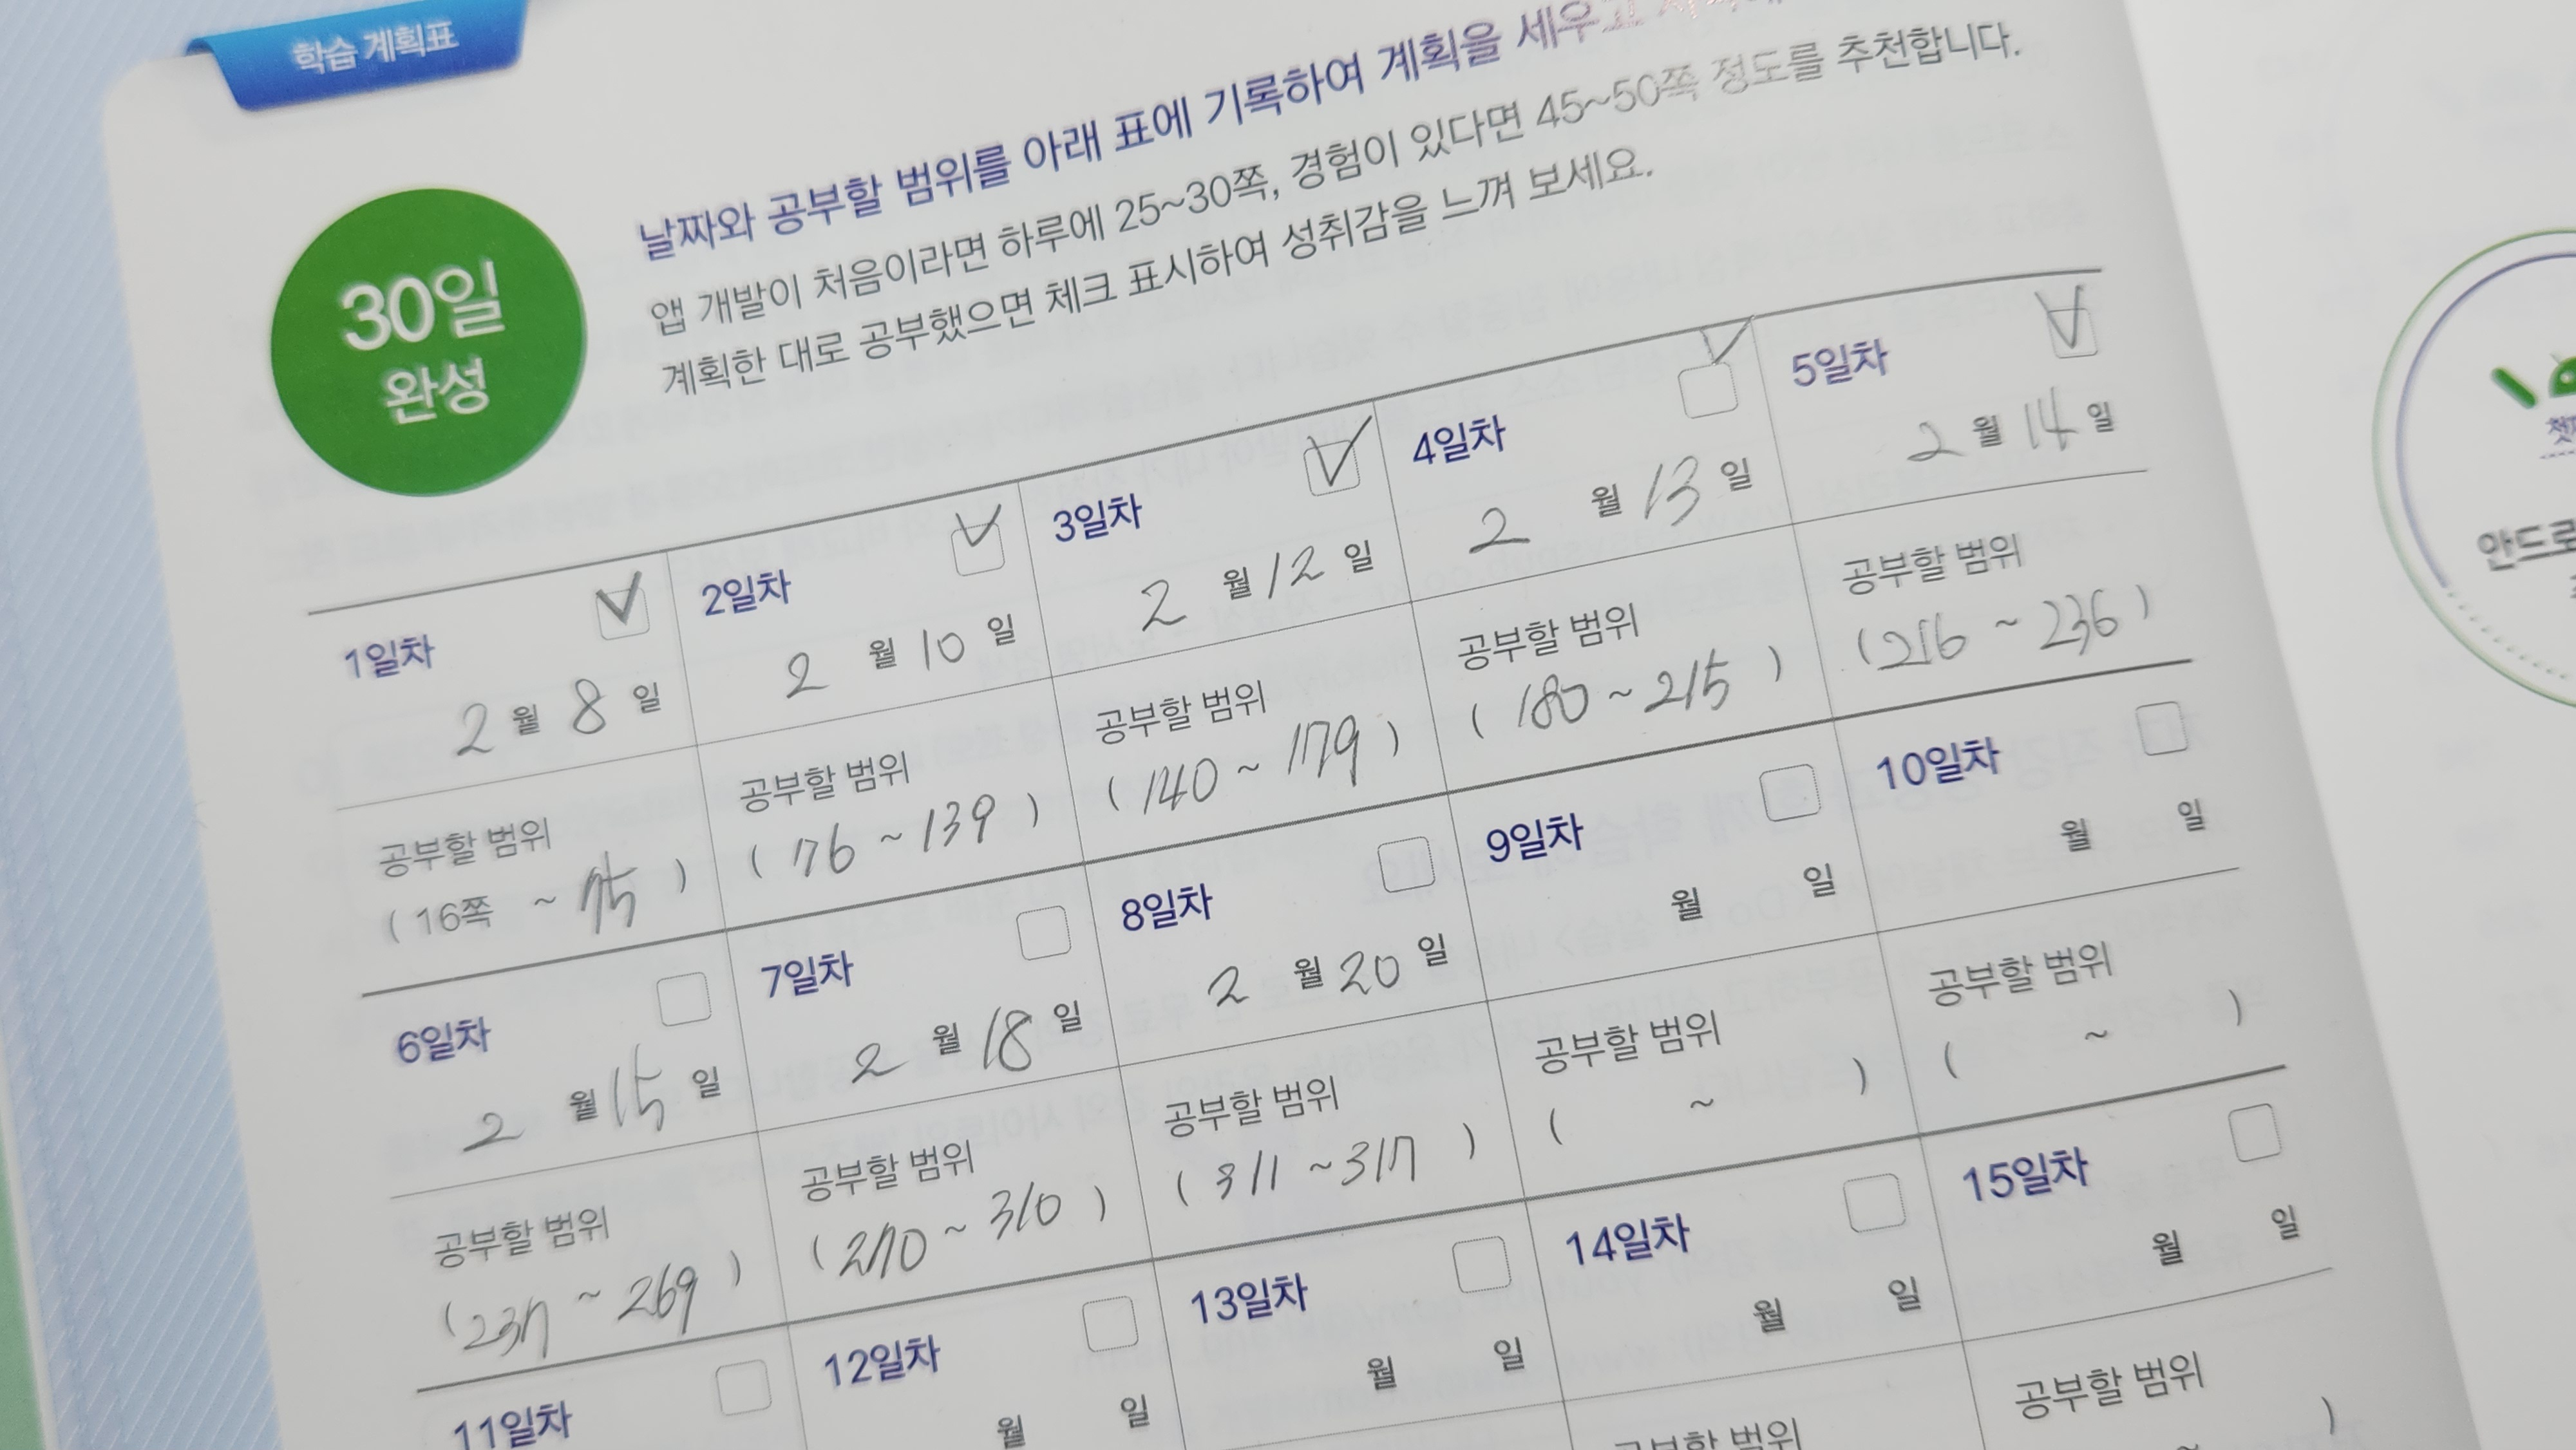 학습 계획표
30일
완성
날짜와 공부할 범위를 아래 표에 기록하여 계획을 세우고
앱 개발이 처음이라면 하루에 25~30쪽, 경험이 있다면 45~50쪽 정도를 추천합니다.
계획한 대로 공부했으면 체크 표시하여 성취감을 느껴 보세요.
1일차
2월 8일
공부할 범위
(16쪽 ~ 75)
2일차
2월 10일
공부할 범위
(76 ~ 139)
3일차
2월 12일
공부할 범위
(140 ~ 179)
4일차
2월 13일
공부할 범위
(180 ~ 215)
5일차
2월 14일
공부할 범위
(216 ~ 236)
6일차
2월 15일
공부할 범위
(237 ~ 269)
7일차
2월 18일
공부할 범위
(270 ~ 310)
8일차
2월 20일
공부할 범위
(311 ~ 317)
9일차
월 일
공부할 범위
( ~ )
10일차
월 일
공부할 범위
( ~ )
11일차
12일차
월 일
13일차
월 일
14일차
월 일
공부할 범위
15일차
월 일
공부할 범위
~ )
안드로